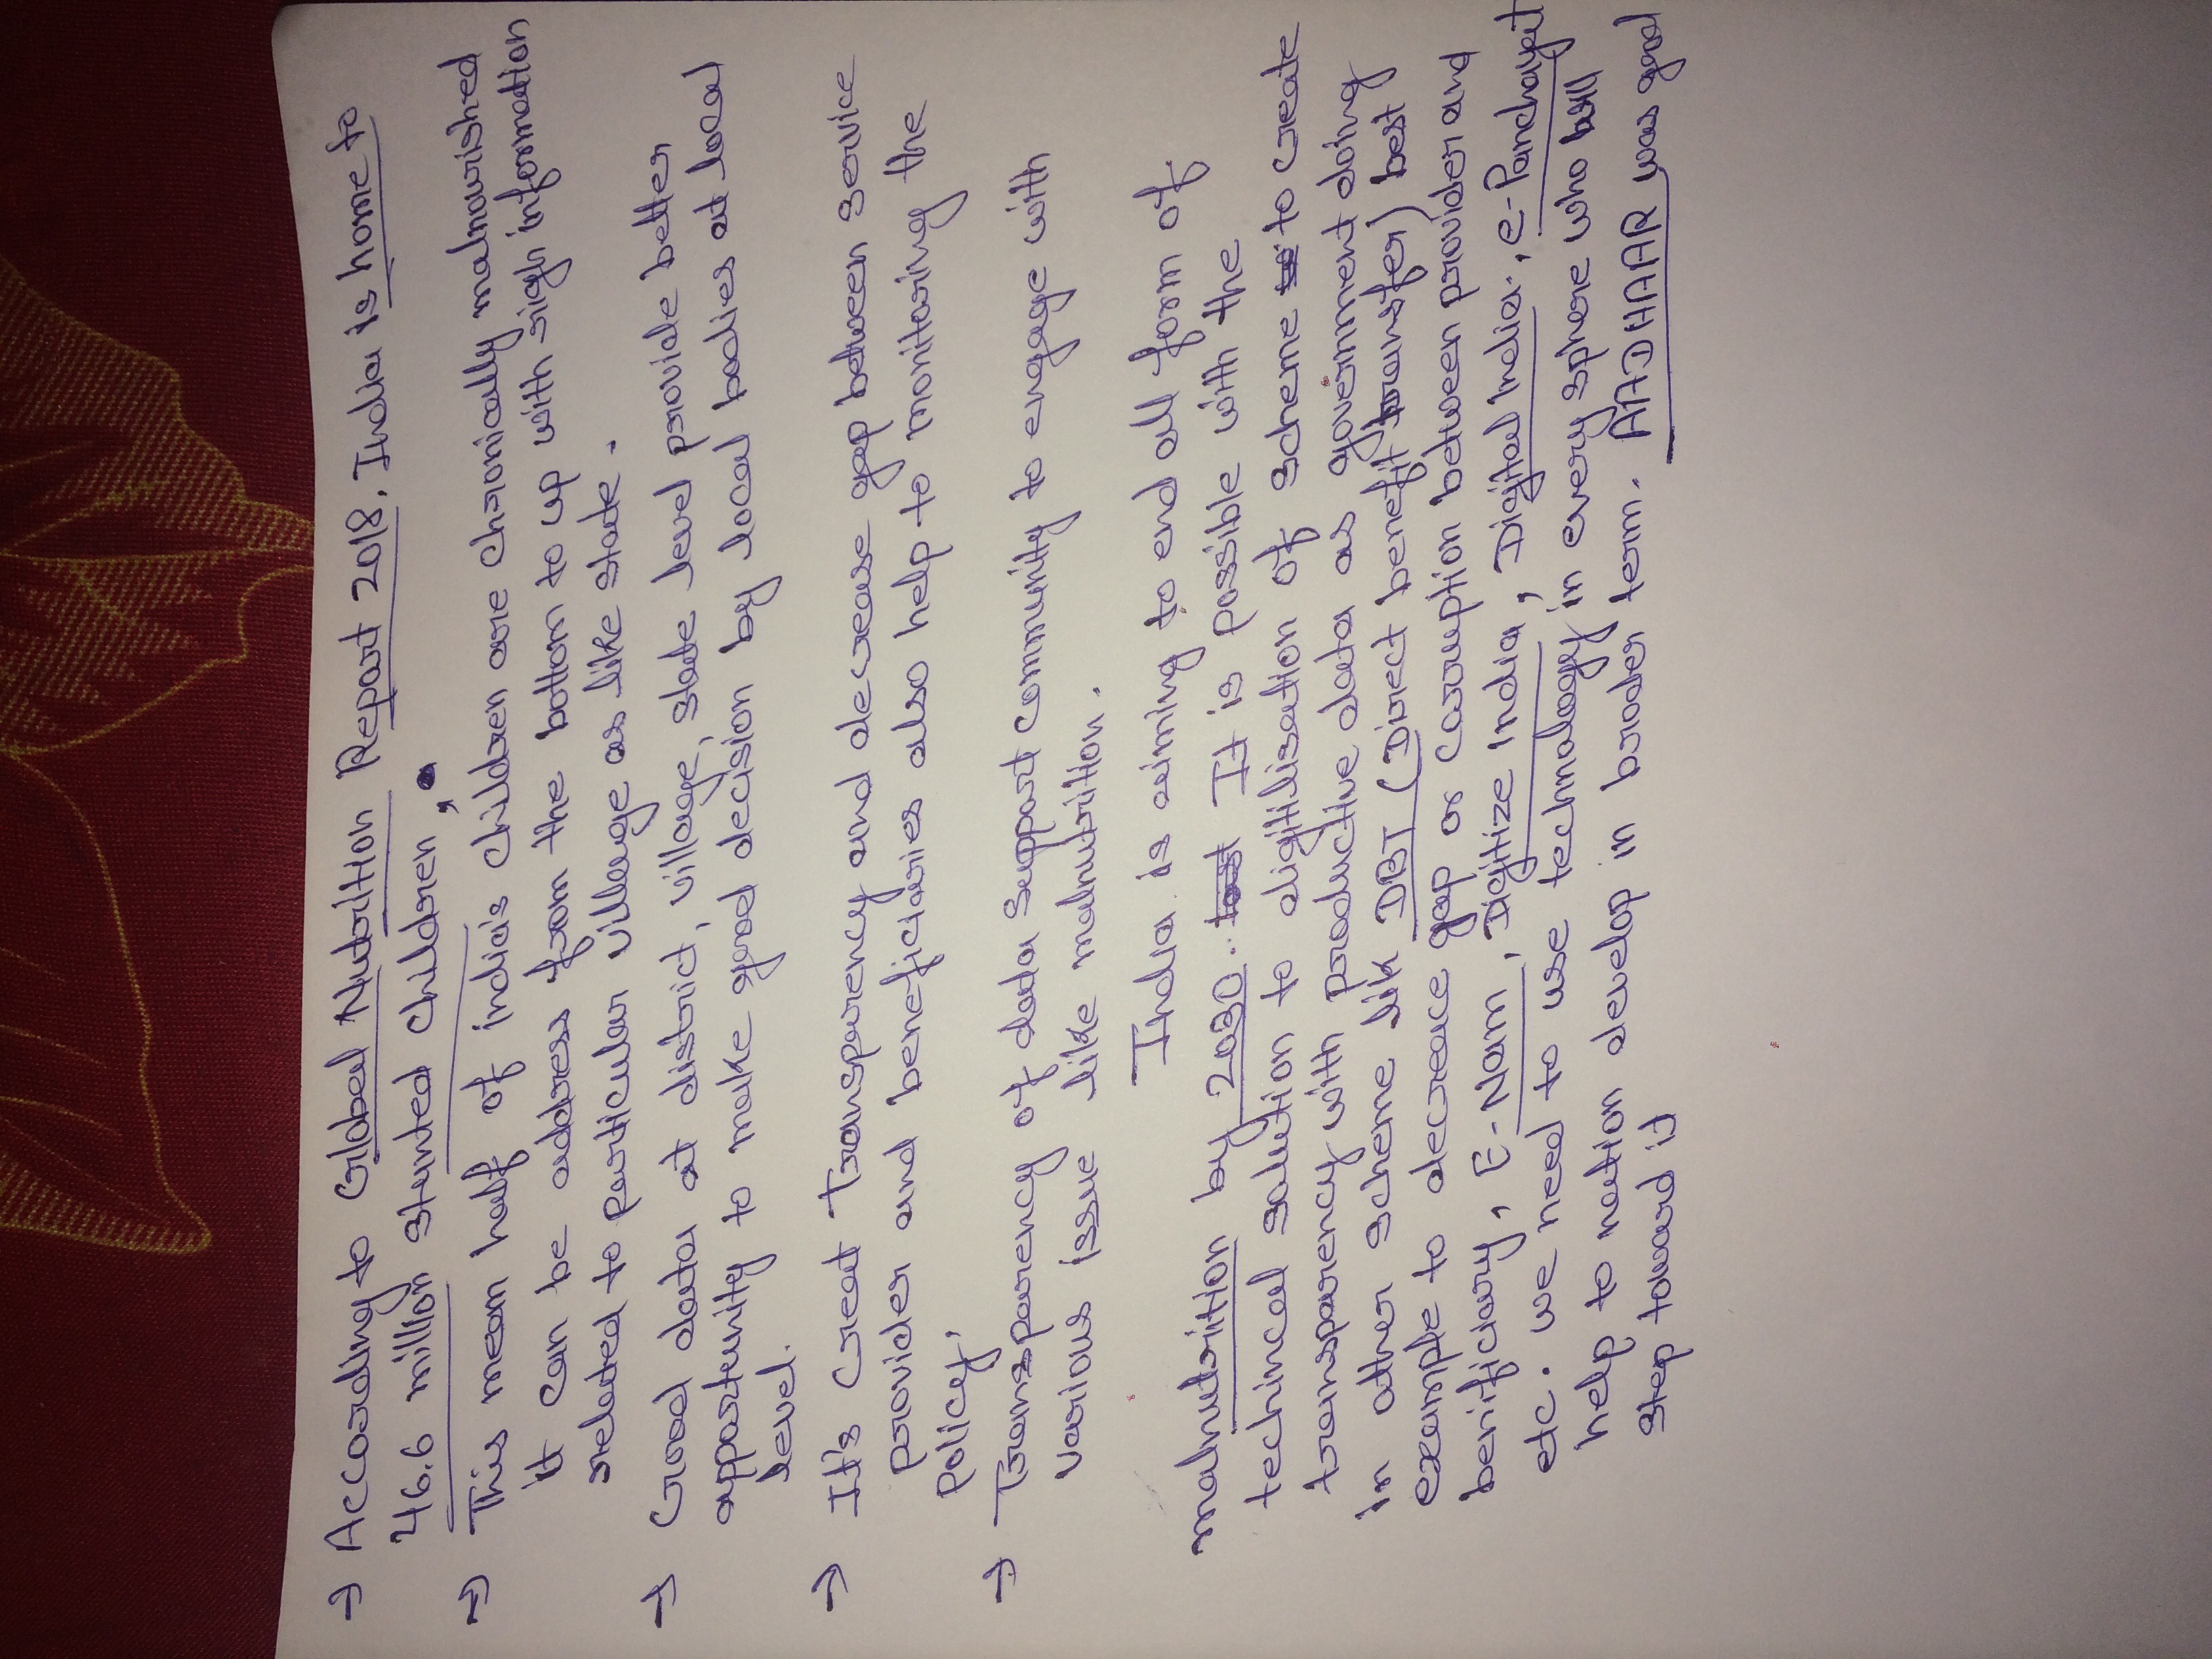 → According to Global Nutrition Report 2018, India is home to
46.6 million stunted children,
→ This mean half of india's children are chronically malnourished
it can be address from the bottom to up with righ information
related to particular village as like state.
→ Good data at district, village, state level provide better
opportunity to make good decision by local bodies at local
level.
→ It's creat transparency and decrease gap between service
provider and beneficiaries also help to monitoring the
policy,
→ Transparency of data support community to engage with
various issue like malnutrition.
India is aiming to end all form of
malnutrition by 2030. It is possible with the
techincal solution to digitilisation of scheme to create
transparency with productive data as government doing
in other scheme lik DBT (Direct benefit transfer) best
example to decreace gap or corruption between provider and
benificiary, E-Nam, Digitize India, Digital India, e-Panchayat
etc. we need to use technology in every sphere who will
help to nation develop in broder term. AADHAAR was good
step toward it